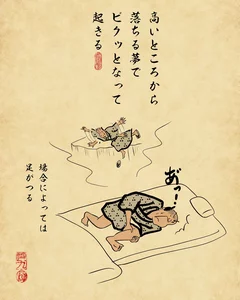 高いところから
落ちる夢で
ビクッとなって
起きる
あっ!
場合によっては
足がつる